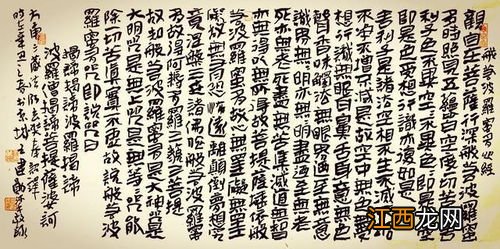 般若波羅蜜多心經
觀自在菩薩行深般若波羅蜜
多時照見五蘊皆空度一切苦厄舍
利子色不異空空不異色色即是空空
即是色受想行識亦復如是
舍利子是諸法空相不生不滅不垢
不淨不增不減是故空中無色無受
想行識無眼耳鼻舌身意無色
聲香味觸法無眼界乃至無意識界無無明亦無無明盡乃至無老
死亦無老死盡無苦集滅道無智
亦無得以無所得故菩提薩埵依般
若波羅蜜多故心無罣礙無罣礙
故無有恐怖遠離顛倒夢想究
竟涅槃三世諸佛依般若波羅蜜
多故得阿耨多羅三藐三菩提
故知般若波羅蜜多是大神咒是
大明咒是無上咒是無等等咒能
除一切苦真實不虛故說般若波
羅蜜多咒即說咒曰
揭諦揭諦波羅揭諦
波羅僧揭諦菩提薩婆訶
大唐三藏法師玄奘奉詔譯
江西龙网